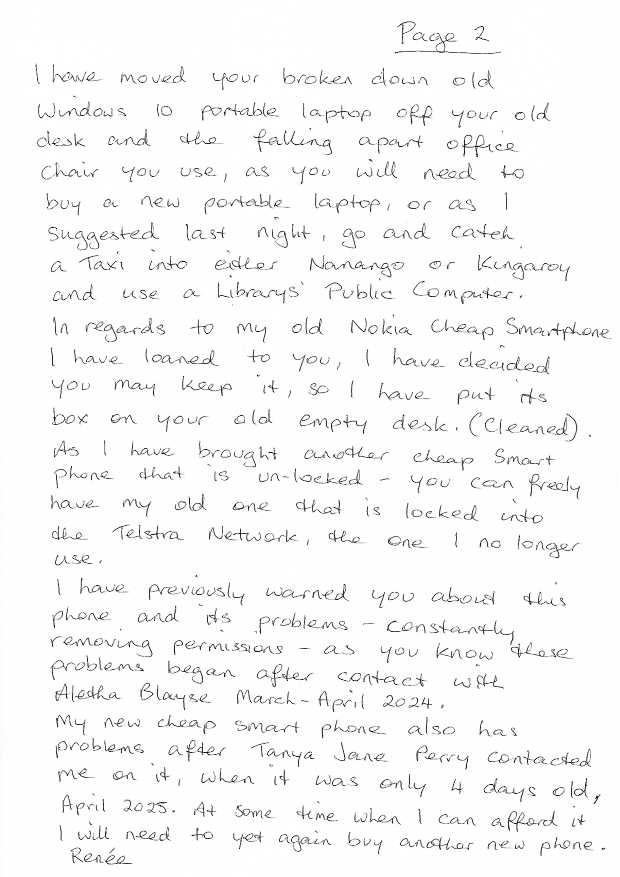 Page 2
I have moved your broken down old
Windows 10 portable laptop off your old
desk and the falling apart office
Chair you use, as you will need to
buy a new portable laptop, or as I
Suggested last night, go and catch
a Taxi into either Nanango or Kingaroy
and use a Librarys' Public Computer.
In regards to my old Nokia Cheap Smartphone
I have loaned to you, I have decided
you may keep it, so I have put its
box on your old empty desk. (Cleaned).
As I have brought another cheap Smart
phone that is un-locked - you can freely
have my old one that is locked into
the Telstra Network, the one I no longer
use.
I have previously warned you about this
phone and its problems - constantly
removing permissions - as you know these
problems began after contact with
Aletha Blayse March - April 2024.
My new cheap smart phone also has
problems after Tanya Jane Perry contacted
me on it, when it was only 4 days old,
April 2025. At some time when I can afford it
I will need to yet again buy another new phone.
Renée